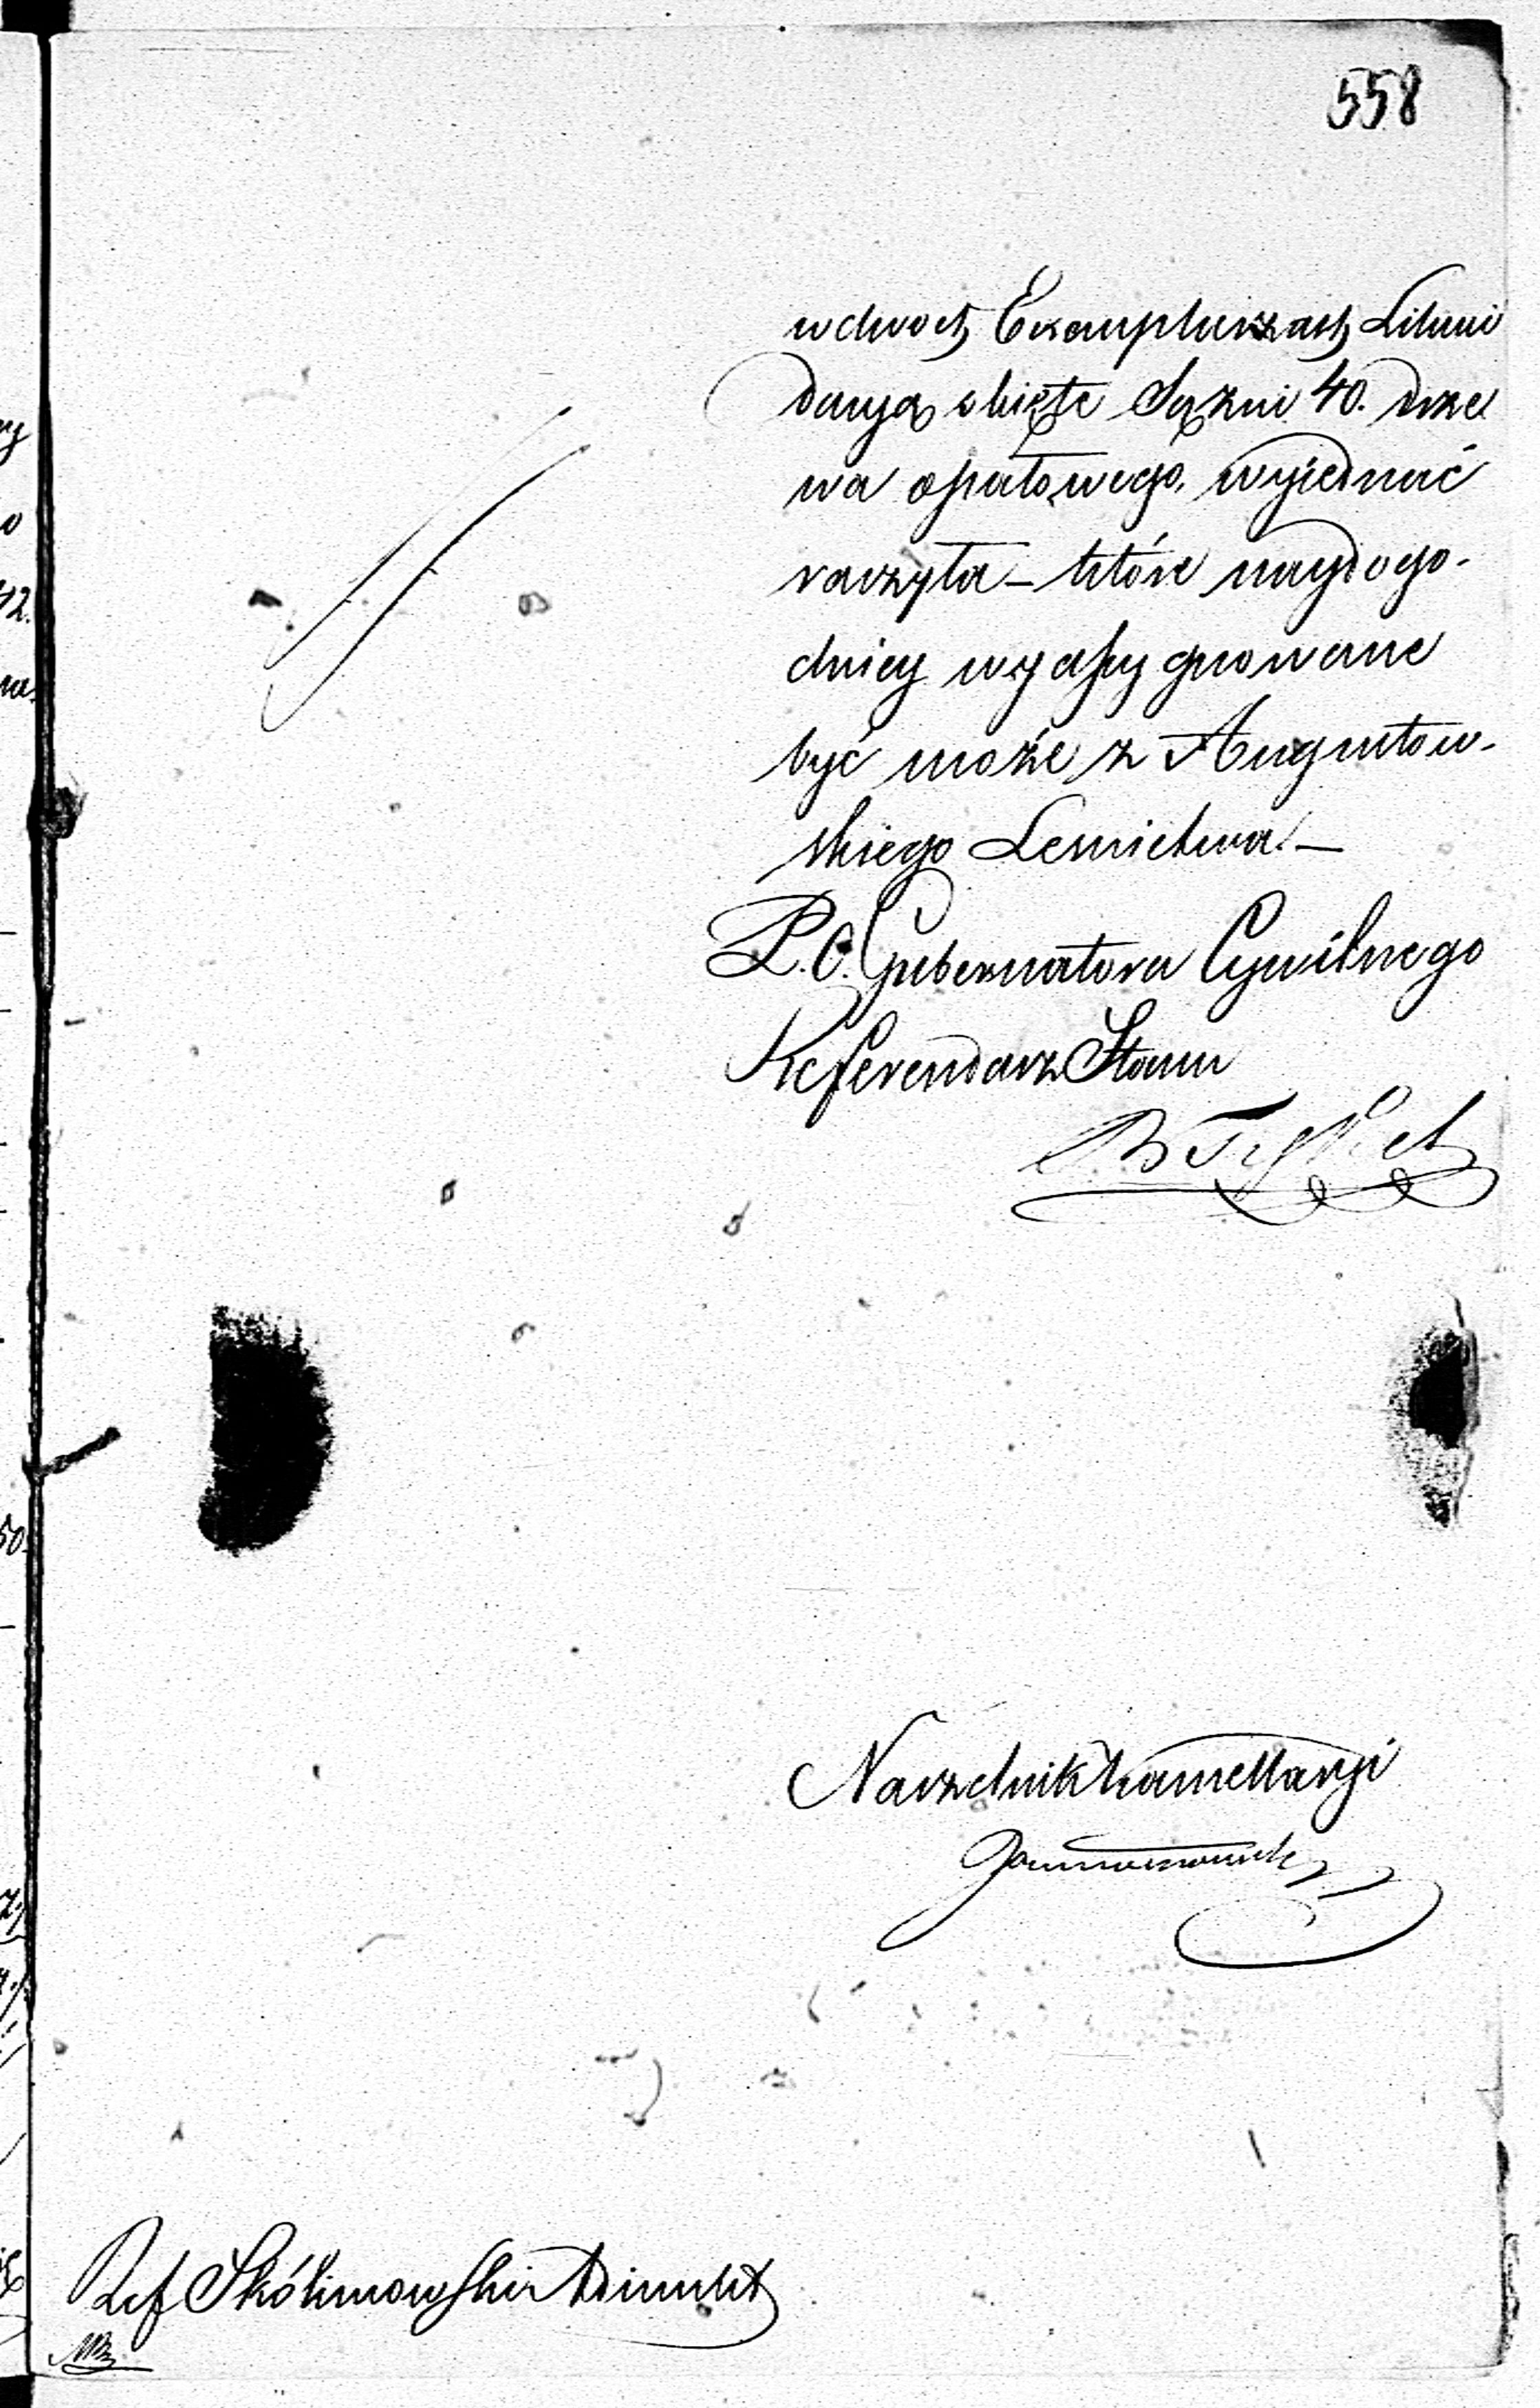 558
w dwóch Exemplarzach Likwi
dacyą objęte Sążni 40. drze
wa opałowego, wyiednać
raczyła – które naydogo-
dniey wyassygnowane
być może z Augustow-
skiego Lesnictwa. –
P. O. Gubernatora Cywilnego
Referendarz Stanu
Naczelnik Kancellaryi
Ref Skólimowski Adiunkt